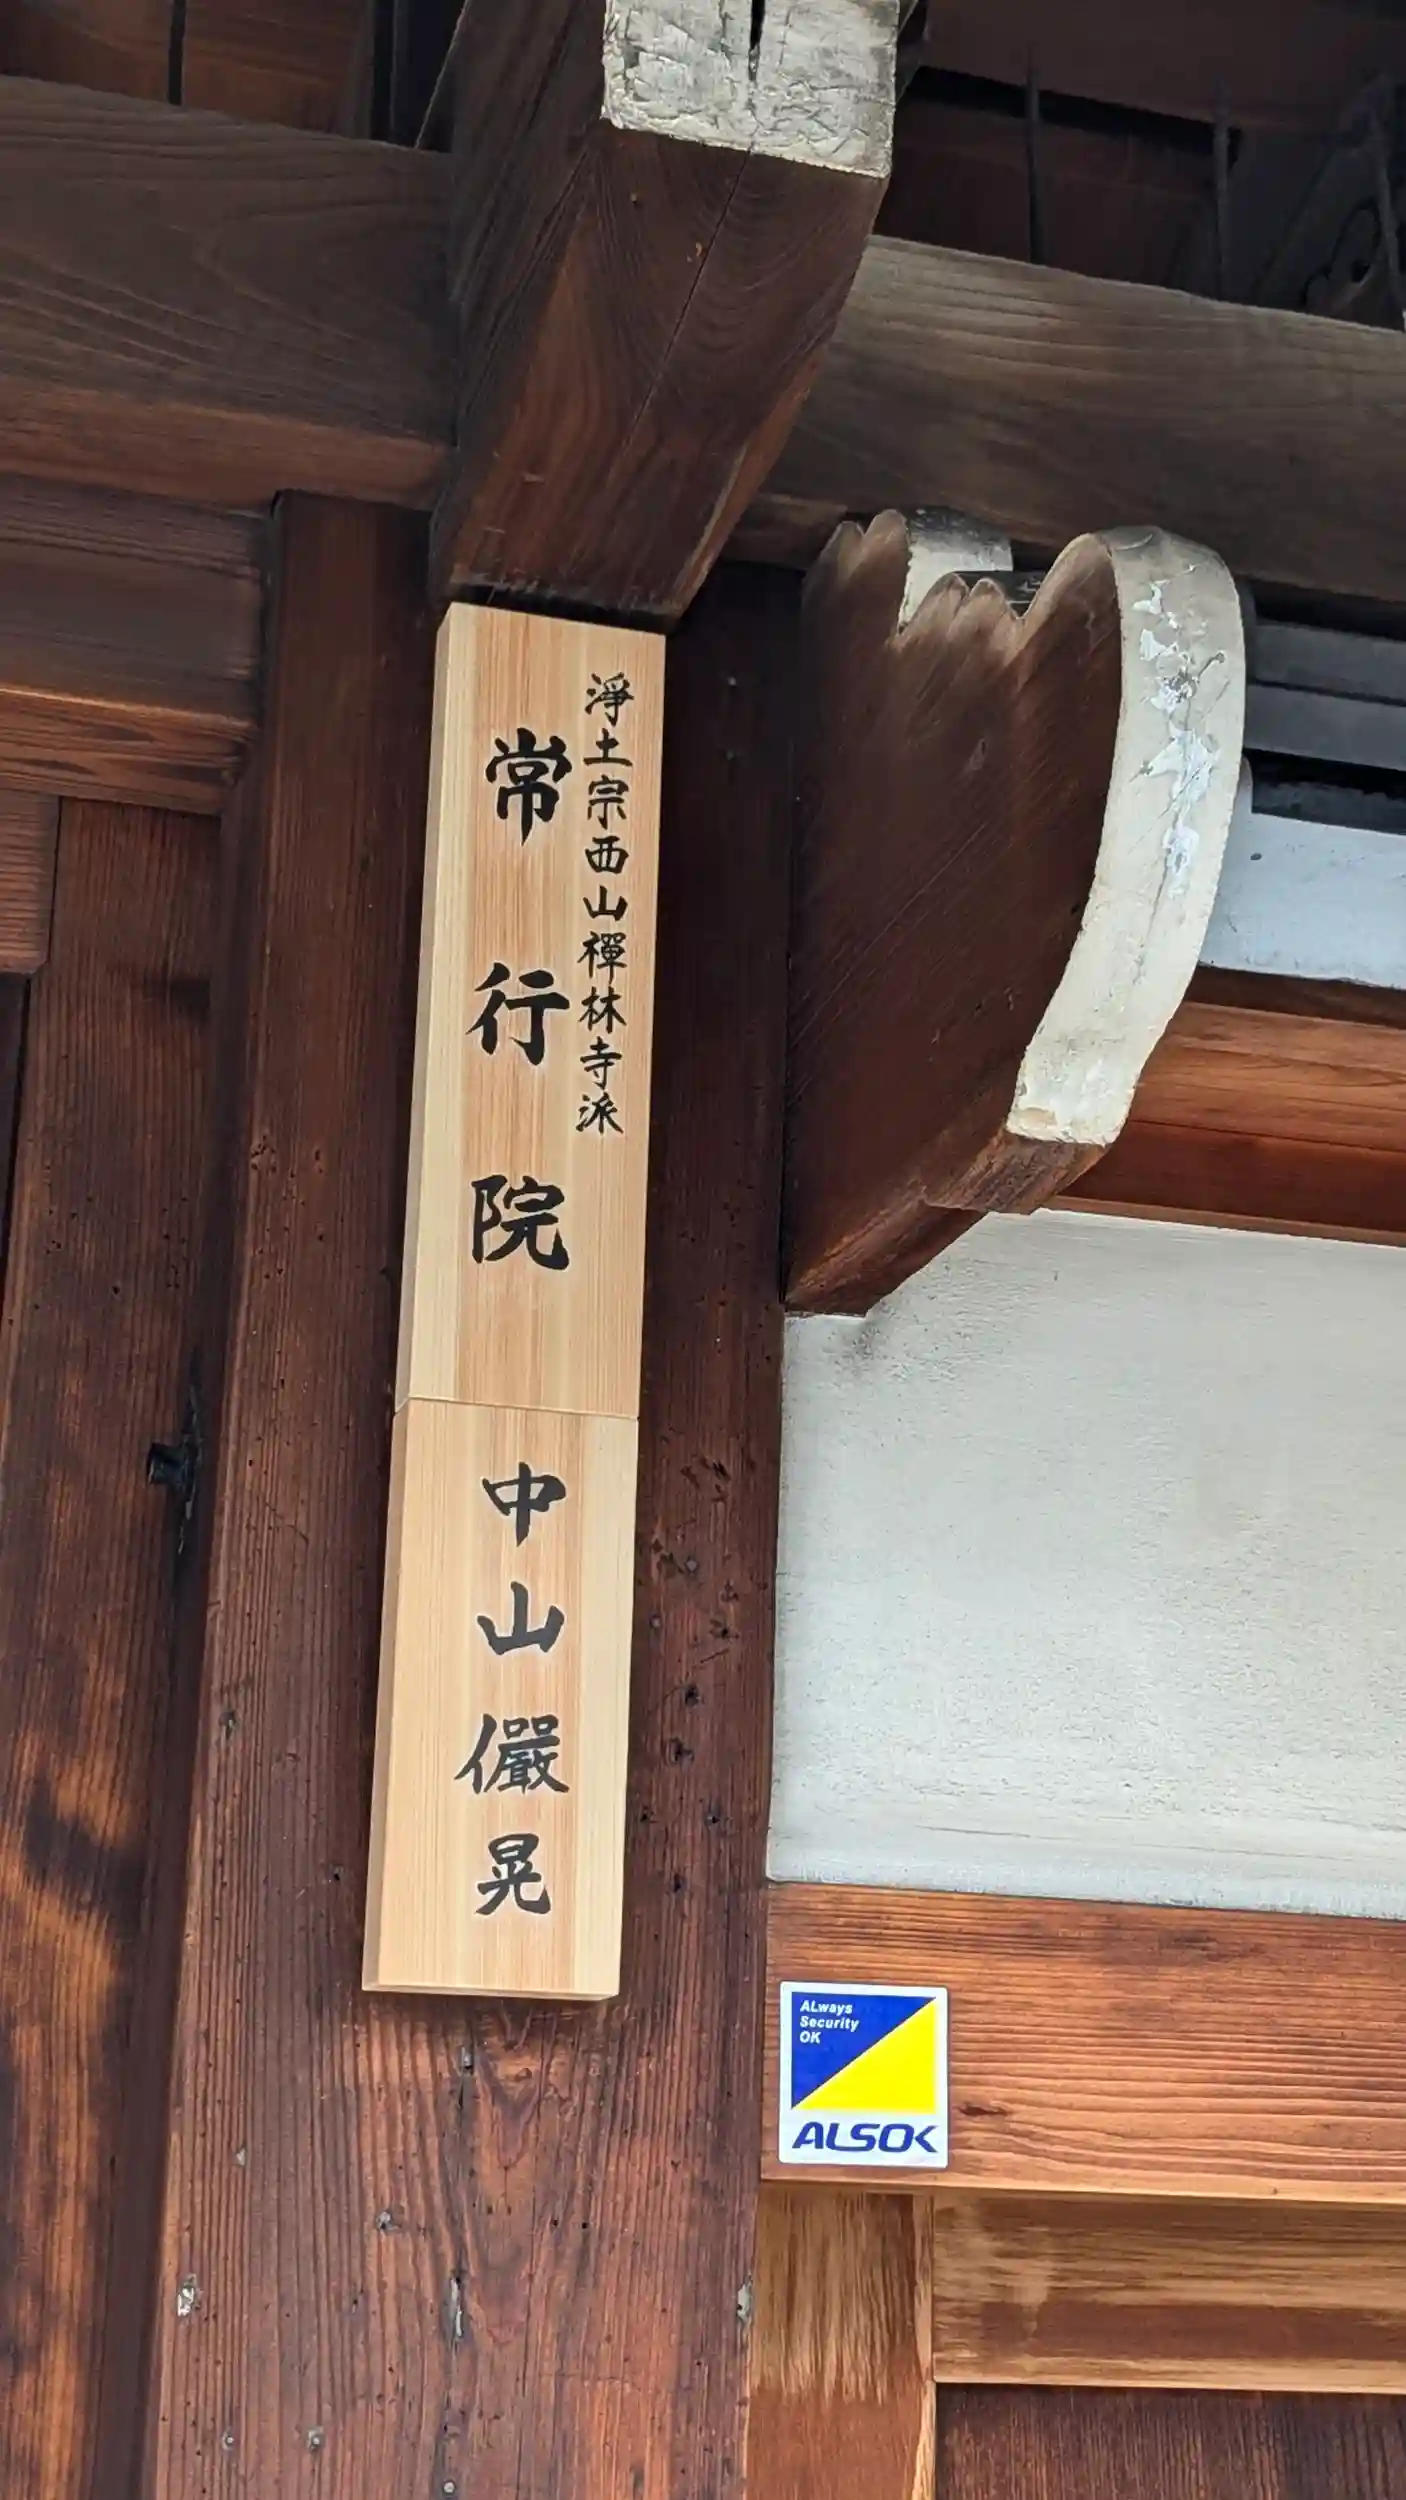 淨土宗西山禪林寺派
常行院
中山儼晃
ALways
Security
OK
ALSOK